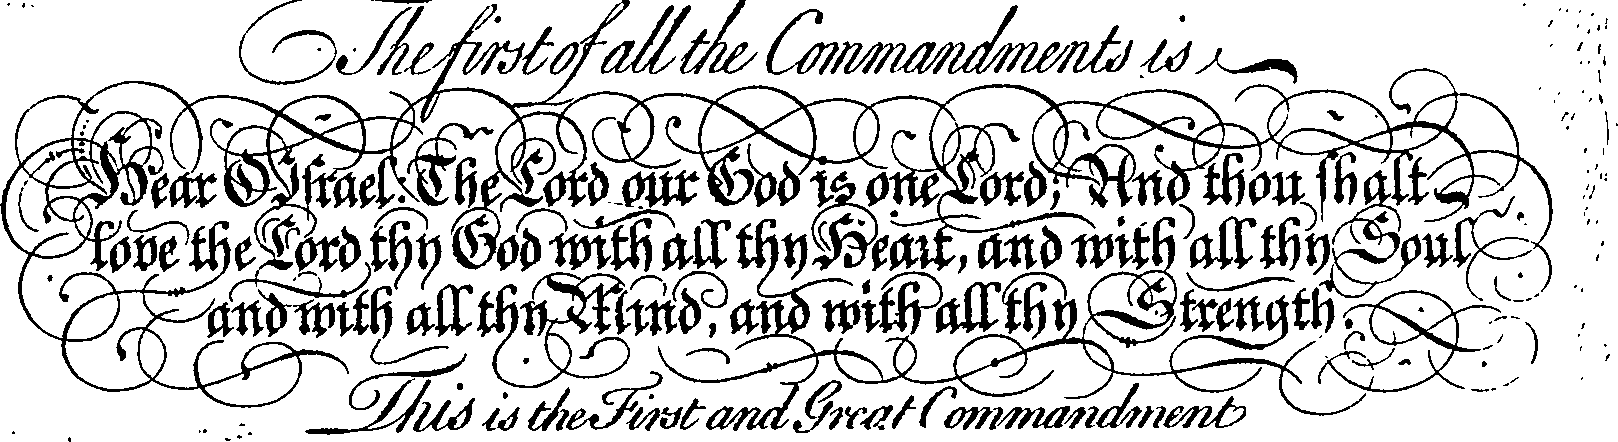 The first of all the Commandments is
Hear O Iſrael: The Lord our God is one Lord; And thou ſhalt
love the Lord thy God with all thy Heart, and with all thy Soul
and with all thy Mind, and with all thy Strength.
This is the First and Great Commandment